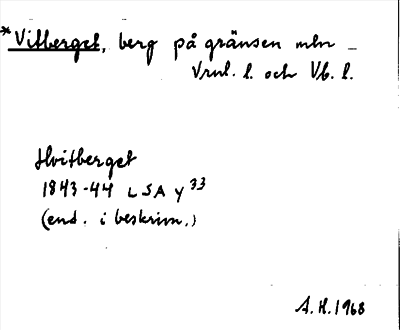 *Vitberget, berg på gränsen mln
Vrml. l. och Vb. l.
Hvitberget
1843-44 LSA Y 33
(end. i beskrivn.)
A.H. 1968